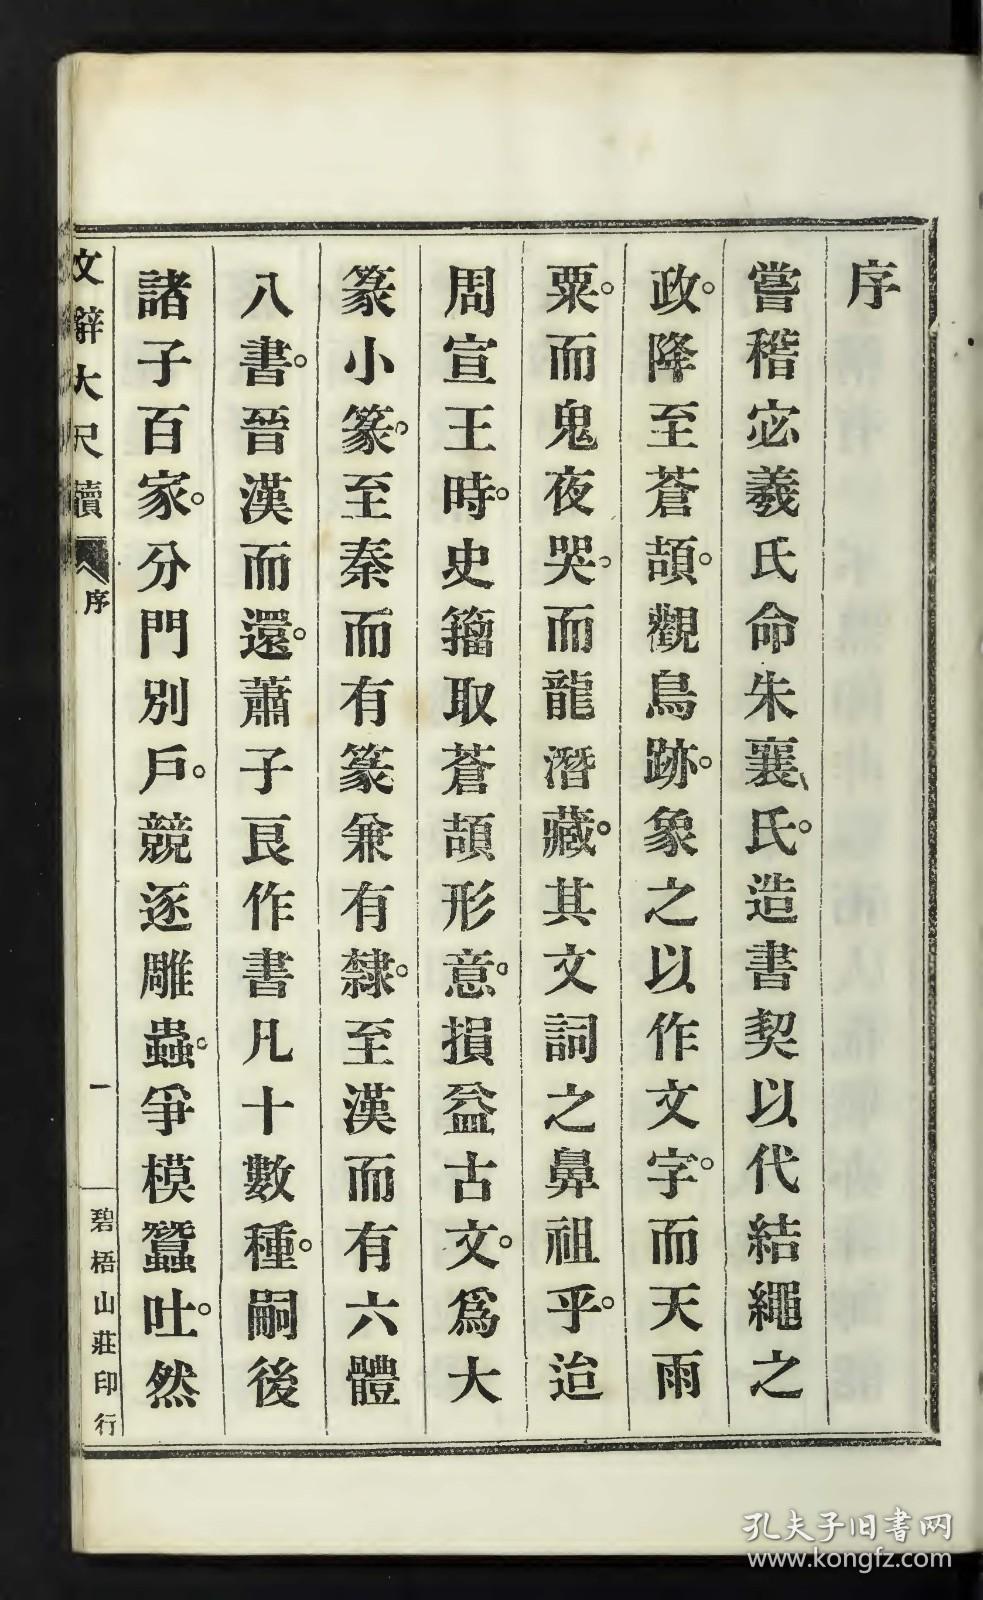 序
嘗稽宓羲氏命朱襄氏。造書契以代結繩之
政。降至蒼頡。觀鳥跡。象之以作文字。而天雨
粟。而鬼夜哭。而龍潛藏。其文詞之鼻祖乎。迨
周宣王時。史籀取蒼頡形意。損益古文。爲大
篆小篆。至秦而有篆兼有隸。至漢而有六體
八書。晉漢而還。蕭子良作書凡十數種。嗣後
諸子百家。分門別戶。競逐雕蟲。爭模蠶吐。然
文辭大尺牘
序
一
碧梧山莊印行
孔夫子旧書网
www.kongfz.com